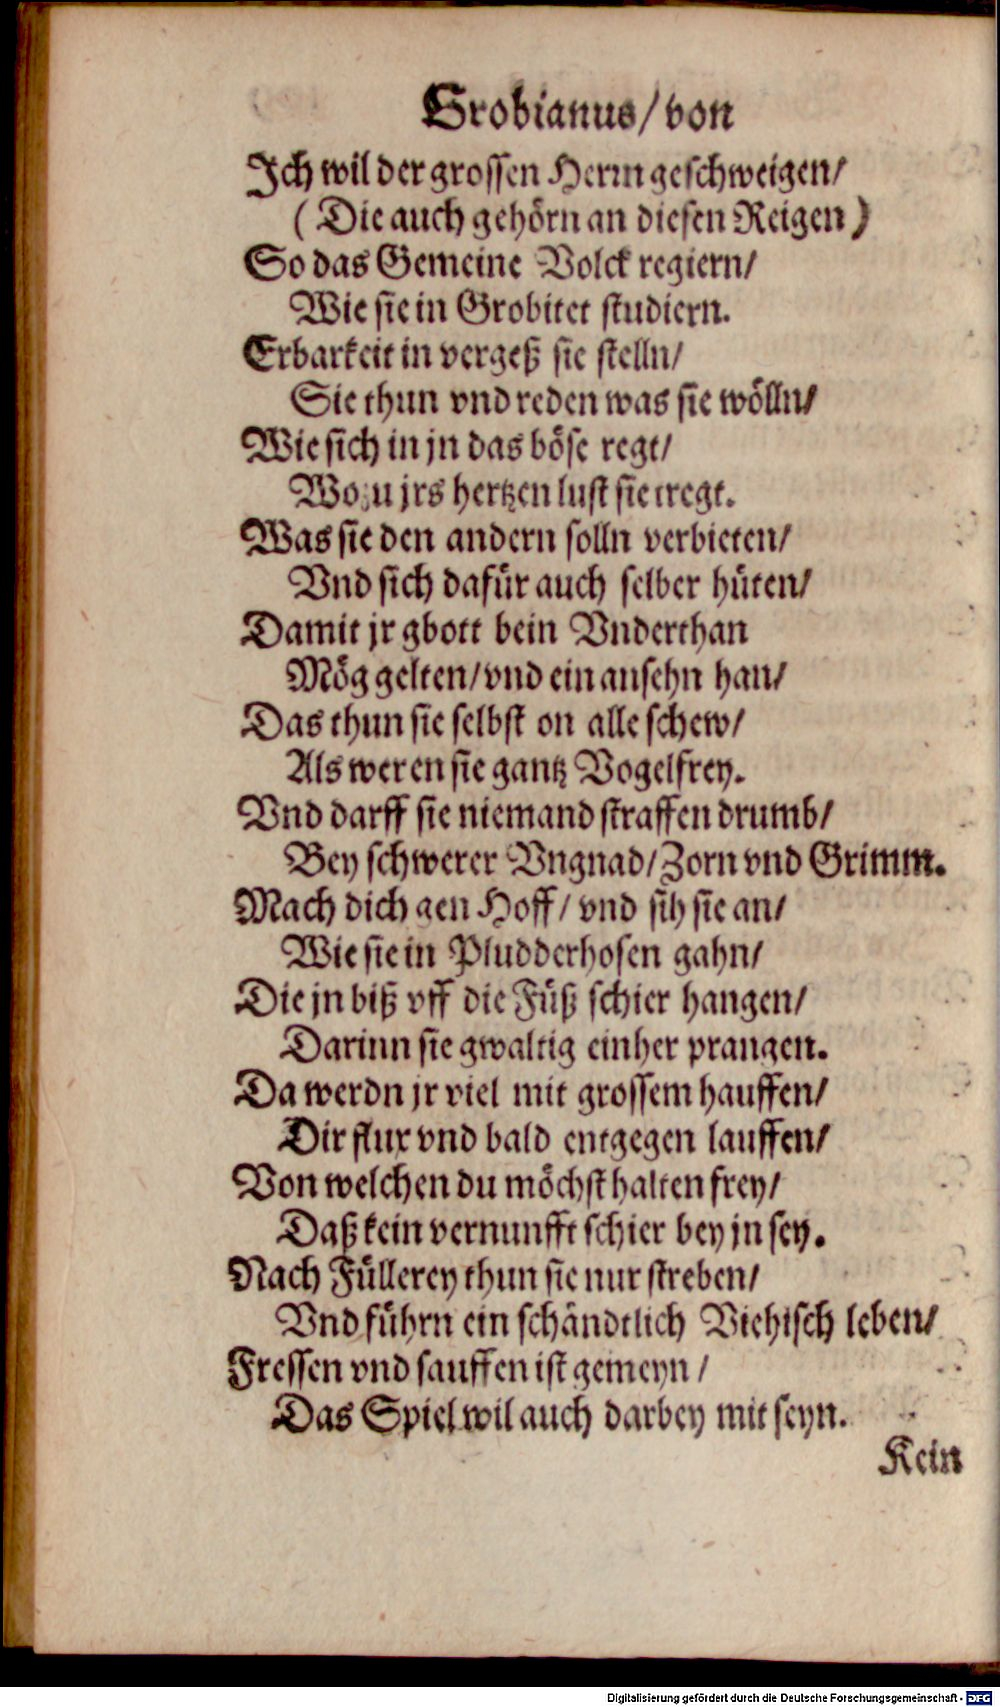 Grobianus/ von
Ich wil der grossen Herrn geschweigen/
(Die auch gehörn an diesen Reigen)
So das Gemeine Volck regiern/
Wie sie in Grobitet studiern.
Erbarkeit in vergeß sie stelln/
Sie thun vnd reden was sie wölln/
Wie sich in jn das böse regt/
Wozu jrs hertzen lust sie tregt.
Was sie den andern solln verbieten/
Vnd sich dafür auch selber hüten/
Damit jr gbott bein Vnderthan
Mög gelten/ vnd ein ansehn han/
Das thun sie selbst on alle schew/
Als weren sie gantz Vogelfrey.
Vnd darff sie niemand straffen drumb/
Bey schwerer Vngnad/ Zorn vnd Grimm.
Mach dich gen Hoff/ vnd sih sie an/
Wie sie in Pludderhosen gahn/
Die jn biß vff die Füß schier hangen/
Darinn sie gwaltig einher prangen.
Da werdn jr viel mit grossem hauffen/
Dir flux vnd bald entgegen lauffen/
Von welchen du möchst halten frey/
Daß kein vernunfft schier bey jn sey.
Nach Füllerey thun sie nur streben/
Vnd führn ein schändtlich Viehisch leben/
Fressen vnd sauffen ist gemeyn/
Das Spiel wil auch darbey mit seyn.
Kein
Digitalisierung gefördert durch die Deutsche Forschungsgemeinschaft - DFG